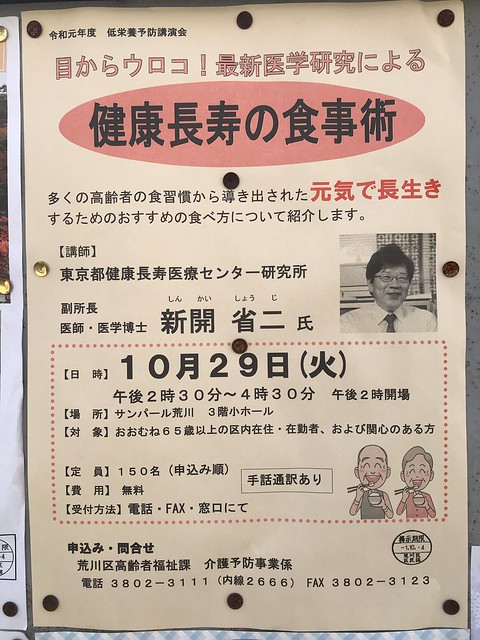 令和元年度　低栄養予防講演会
目からウロコ！最新医学研究による
健康長寿の食事術
多くの高齢者の食習慣から導き出された元気で長生き
するためのおすすめの食べ方について紹介します。
【講師】
東京都健康長寿医療センター研究所
副所長
医師・医学博士　新開 省二 氏
しん かい しょう じ
【日　時】１０月２９日(火)
午後２時３０分～４時３０分　午後２時開場
【場　所】サンパール荒川　３階小ホール
【対　象】おおむね６５歳以上の区内在住・在勤者、および関心のある方
【定　員】１５０名（申込み順）
【費　用】無料
手話通訳あり
【受付方法】電話・FAX・窓口にて
申込み・問合せ
荒川区高齢者福祉課　介護予防事業係
電話 ３８０２－３１１１（内線２６６６） FAX ３８０２－３１２３
掲示期限
-1.10.-4